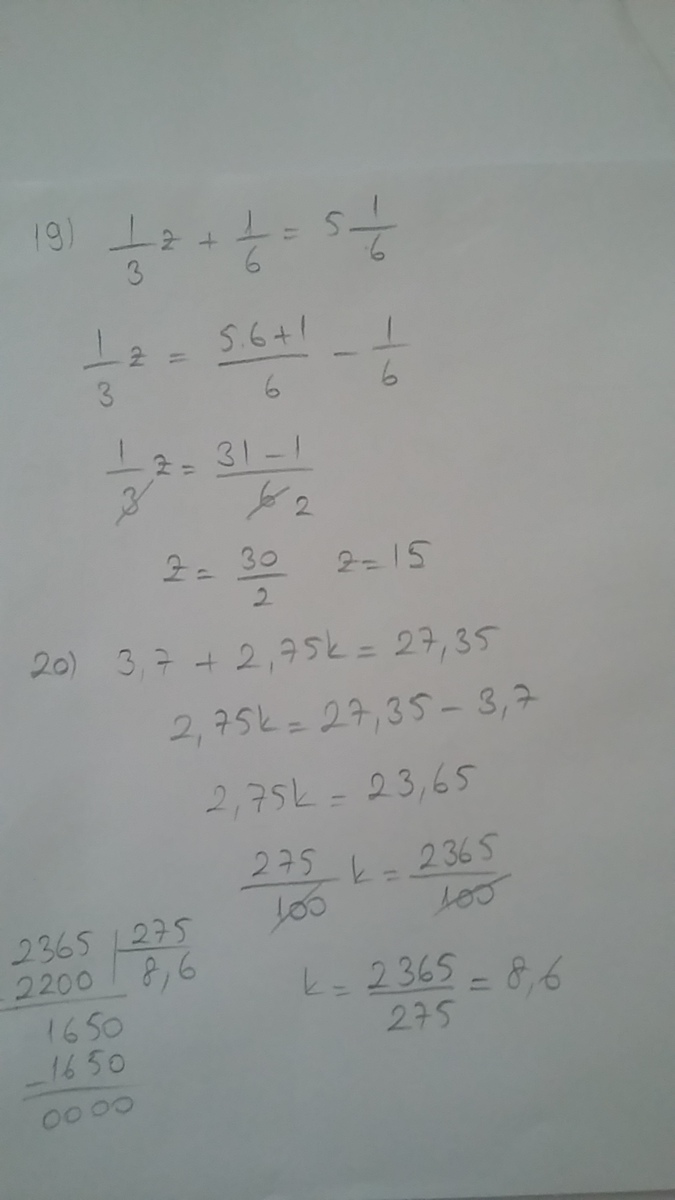 19) 1/3 z + 1/6 = 5 1/6
1/3 z = 5.6+1/6 - 1/6
1/3 z = 31-1/6 2
z = 30/2 z=15
20) 3,7 + 2,75k = 27,35
2,75k = 27,35 - 3,7
2,75k = 23,65
275/100 k = 2365/100
k = 2365/275 = 8,6
2365 | 275
- 2200 8,6
1650
- 1650
0000